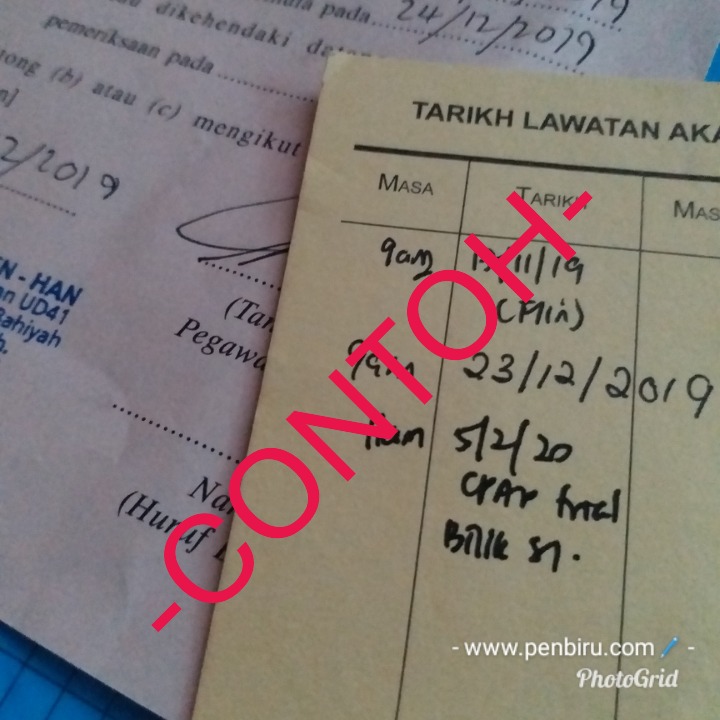 pada 24/12/2019
dikehendaki
pemeriksaan pada
(b) atau (c) mengikut
2/2019
- HAN
UD41
(Tan
Pegawa
Na
(Huruf
TARIKH LAWATAN AKA
MASA TARIKH MAS
9am /11/19
(Min)
9am 23/12/2019
5/2/20
CPAP trial
Bilik 51.
-CONTOH-
- www.penbiru.com -
PhotoGrid